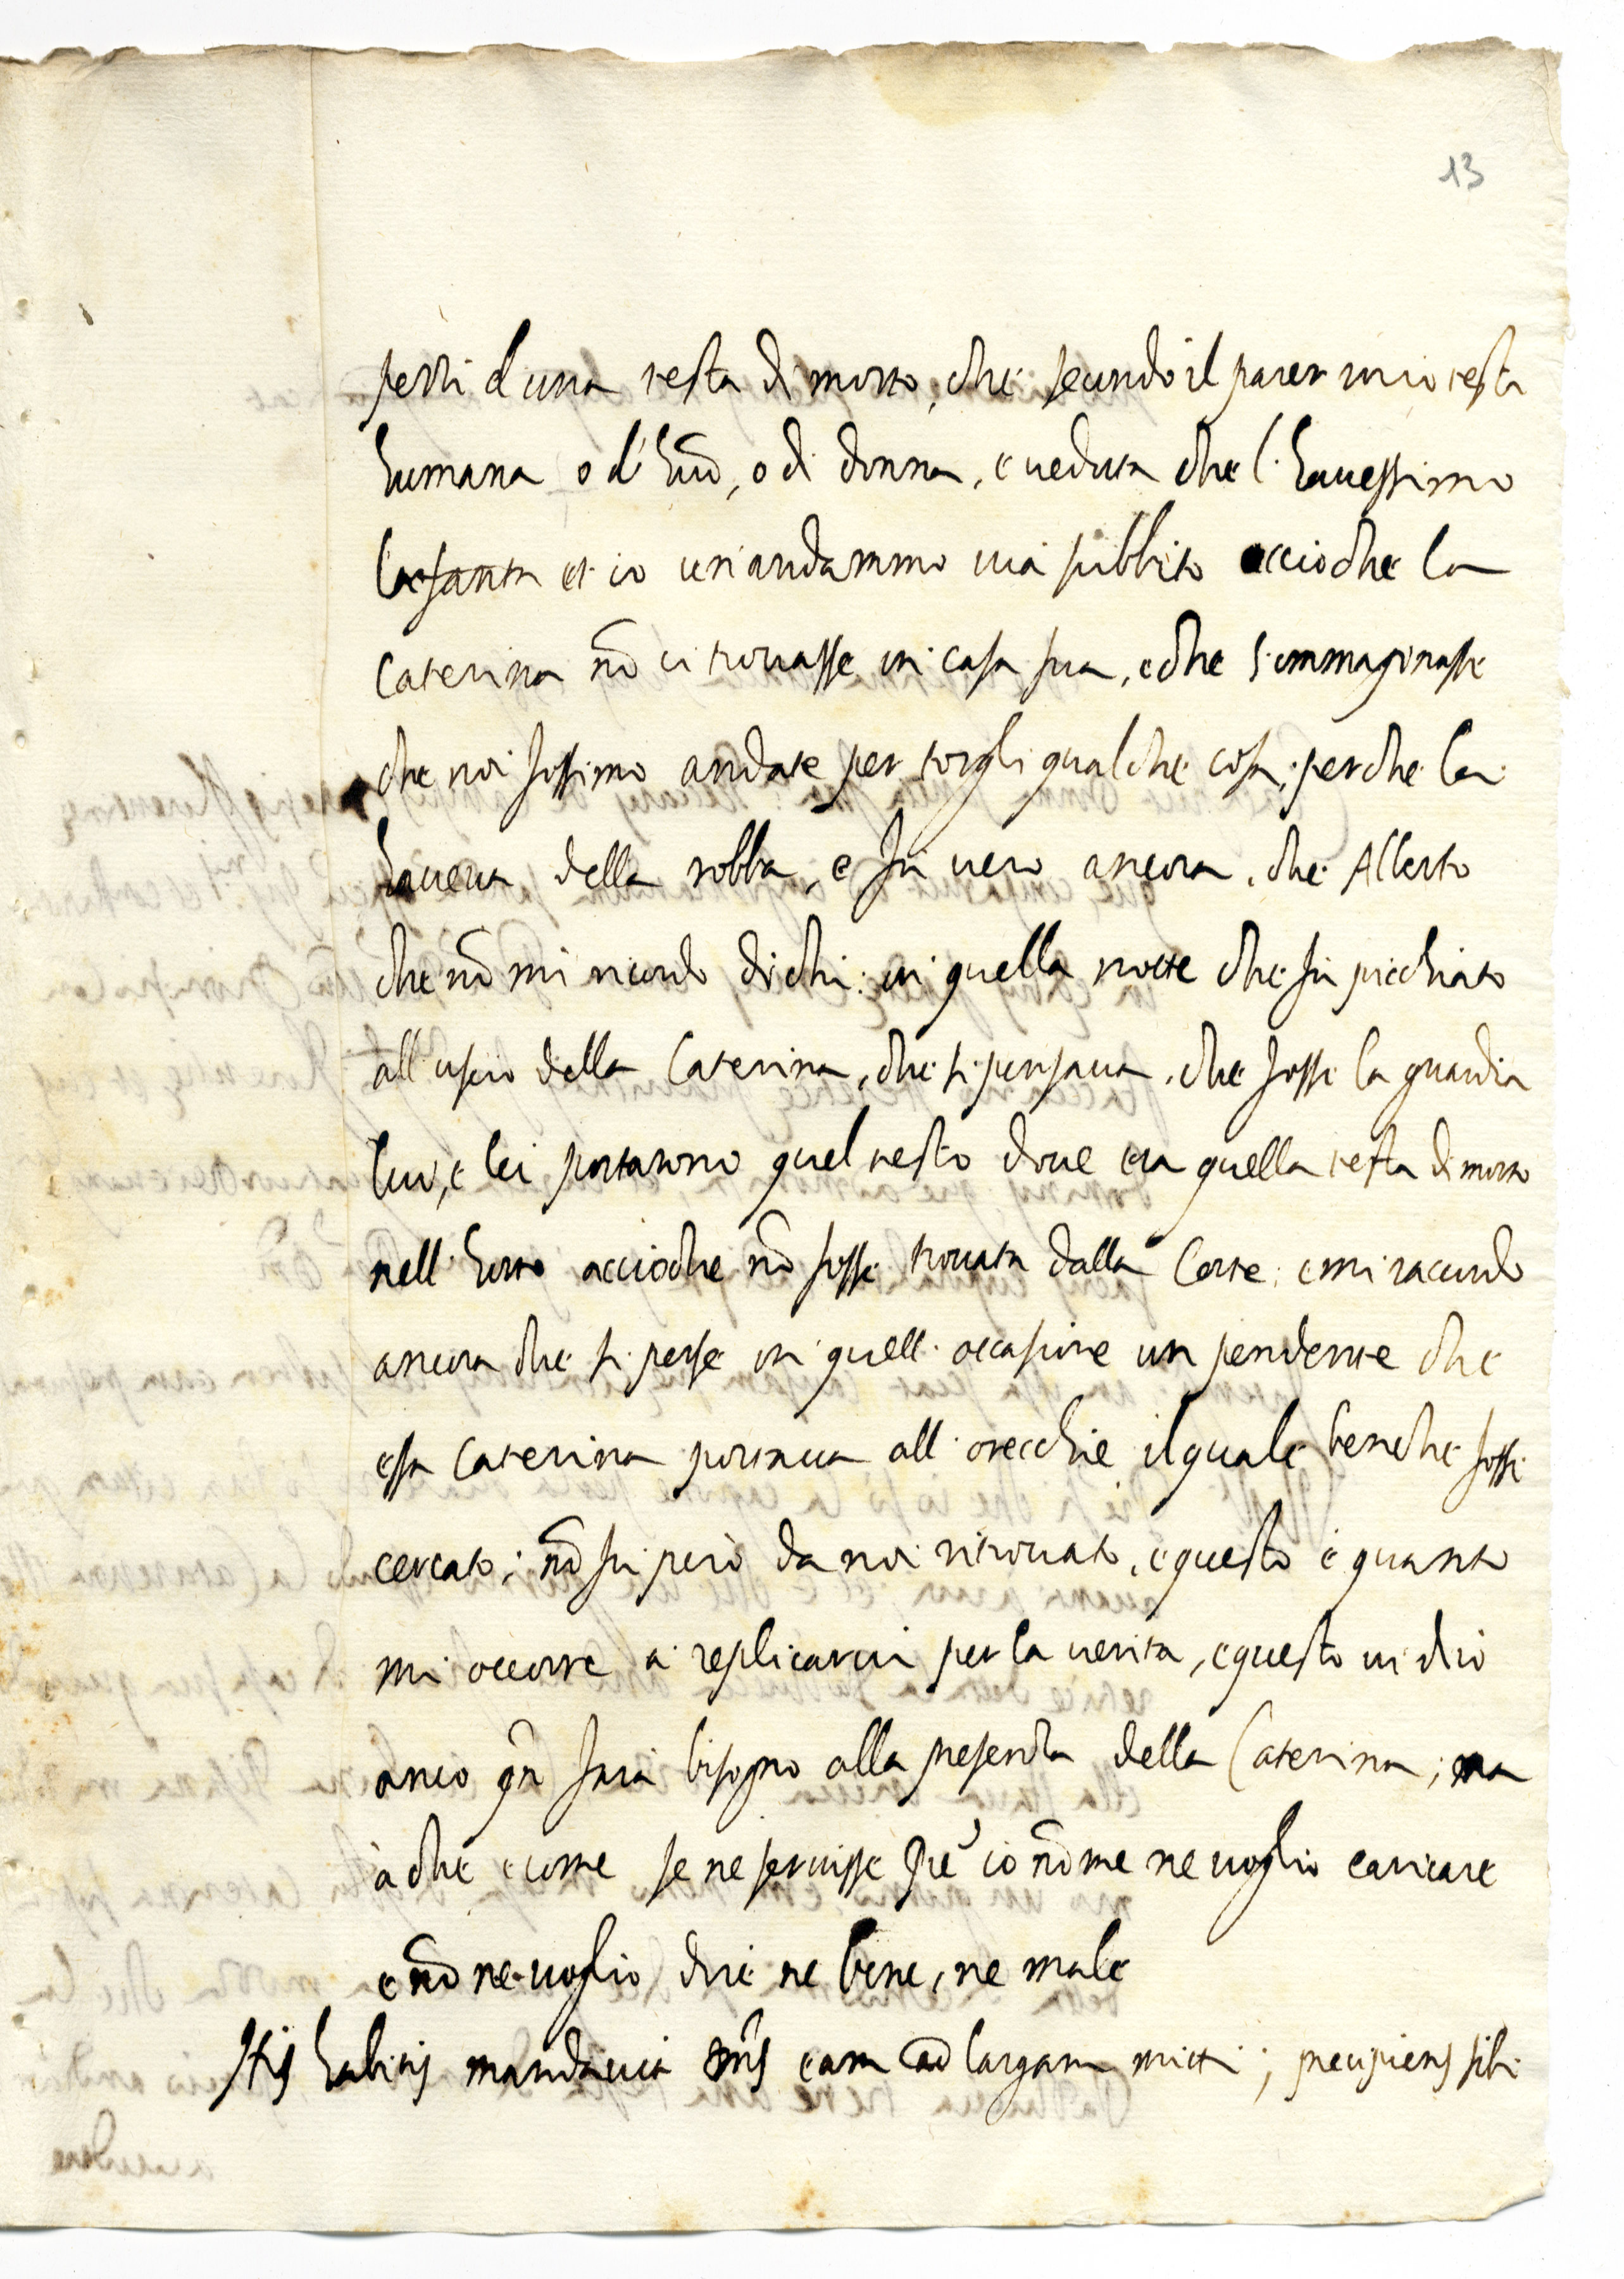 13
pezzi d una testa di morto, che secundo il parer mio testa
humana o d'huō, o di donna, e ueduta che l'hauessimo
la santa et io cen'andammo uia subbito accioche la
Caterina nō ci trouasse in casa sua, e che s'immaginasse
che noi fossimo andate per torgli qualche cosa, perche la
haueua della robba, e fu uero ancora, che Alberto
che nō mi ricordo di chi: in quella notte che fu picchiato
all uscio della Caterina, che si pensaua, che fosse la guardia
lui, e lei portarono quel testo doue era quella testa di morto
nell horto accioche nō fosse trouata dalla Corte: e mi raccordo
ancora che si perse in quell' occasione un pendente che
essa Caterina portaua all' orecchie il quale benche fosse
cercato; nō fu però da noi ritrouato, e questo è quanto
mi occorre à replicarui per la uerita, e questo ui dirò
anco qn̄ farà bisogno alla presenza della Caterina; ma
à che e come se ne seruisse io nō me ne uoglio caricare
e nō ne uoglio dire ne bene, ne male
Stis habitis mandauit eam ad largam mitti; precipiens sibi